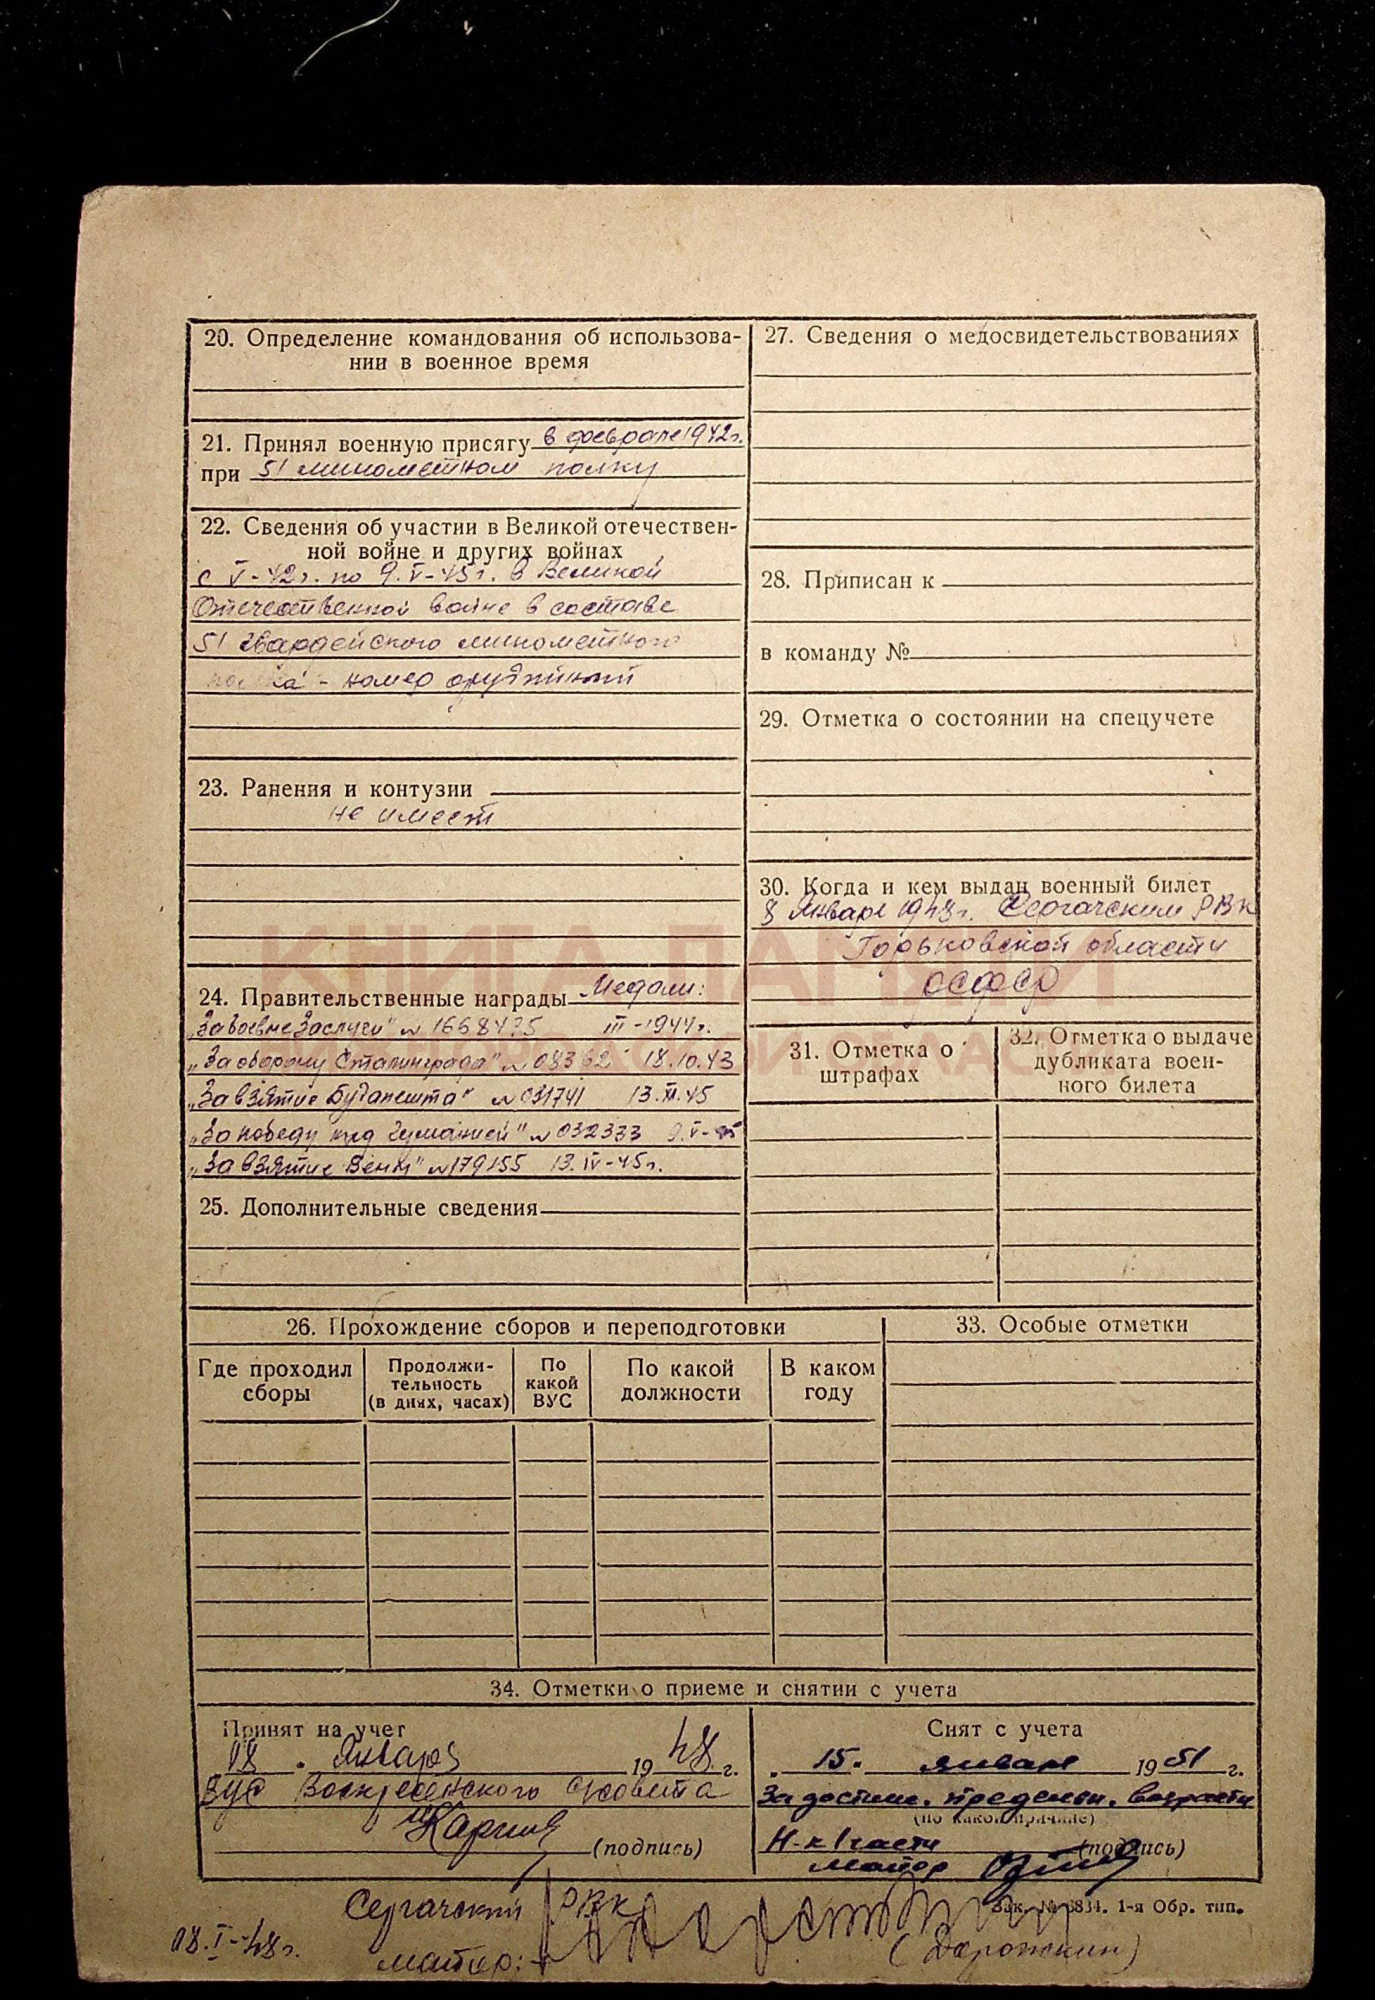 20. Определение командования об использова-
нии в военное время
21. Принял военную присягу в феврале 1942 г.
при 51 минометном полку
22. Сведения об участии в Великой отечествен-
ной войне и других войнах
с V-42 г. по 9.V-45 г. в Великой
Отечественной войне в составе
51 гвардейского минометного
полка - номер орудийный
23. Ранения и контузии
не имеет
24. Правительственные награды Медали:
„За боевые заслуги" № 1668475 III-1944 г.
„За оборону Сталинграда" № 08362 18.10.43
„За взятие Будапешта" № 031741 13.II.45
„За победу над Германией" № 032333 9.V-45
„За взятие Вены" № 179155 13.IV-45 г.
25. Дополнительные сведения
26. Прохождение сборов и переподготовки
Где проходил сборы
Продолжи-
тельность
(в днях, часах)
По
какой
ВУС
По какой
должности
В каком
году
27. Сведения о медосвидетельствованиях
28. Приписан к
в команду №
29. Отметка о состоянии на спецучете
30. Когда и кем выдан военный билет
8 января 1948 г. Сергачским РВК
Горьковской области
РСФСР
31. Отметка о
штрафах
32. Отметка о выдаче
дубликата воен-
ного билета
33. Особые отметки
34. Отметки о приеме и снятии с учета
Принят на учет
„08" января 1948 г.
ВУС Воскресенского с/совета
(подпись)
Снят с учета
„15" январе 1951 г.
За достиж. предельн. возраста
(по какой причине)
Н-к 1 части
(подпись)
майор
Зак. № 6834. 1-я Обр. тип.
Сергачский РВК
08.I-48 г.
майор:
(Дорожкин)
КНИГА ПАМЯТИ
НИЖЕГОРОДСКОЙ ОБЛАСТИ